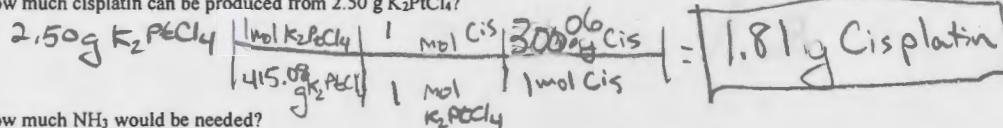 ow much cisplatin can be produced from 2.50 g K₂PtCl₄?
2.50g K₂PtCl₄ | 1 mol K₂PtCl₄ | 1 mol Cis | 300.06 g Cis | = 1.81 g Cisplatin
| 415.08 g K₂PtCl | 1 mol K₂PtCl₄ | 1 mol Cis |
ow much NH₃ would be needed?